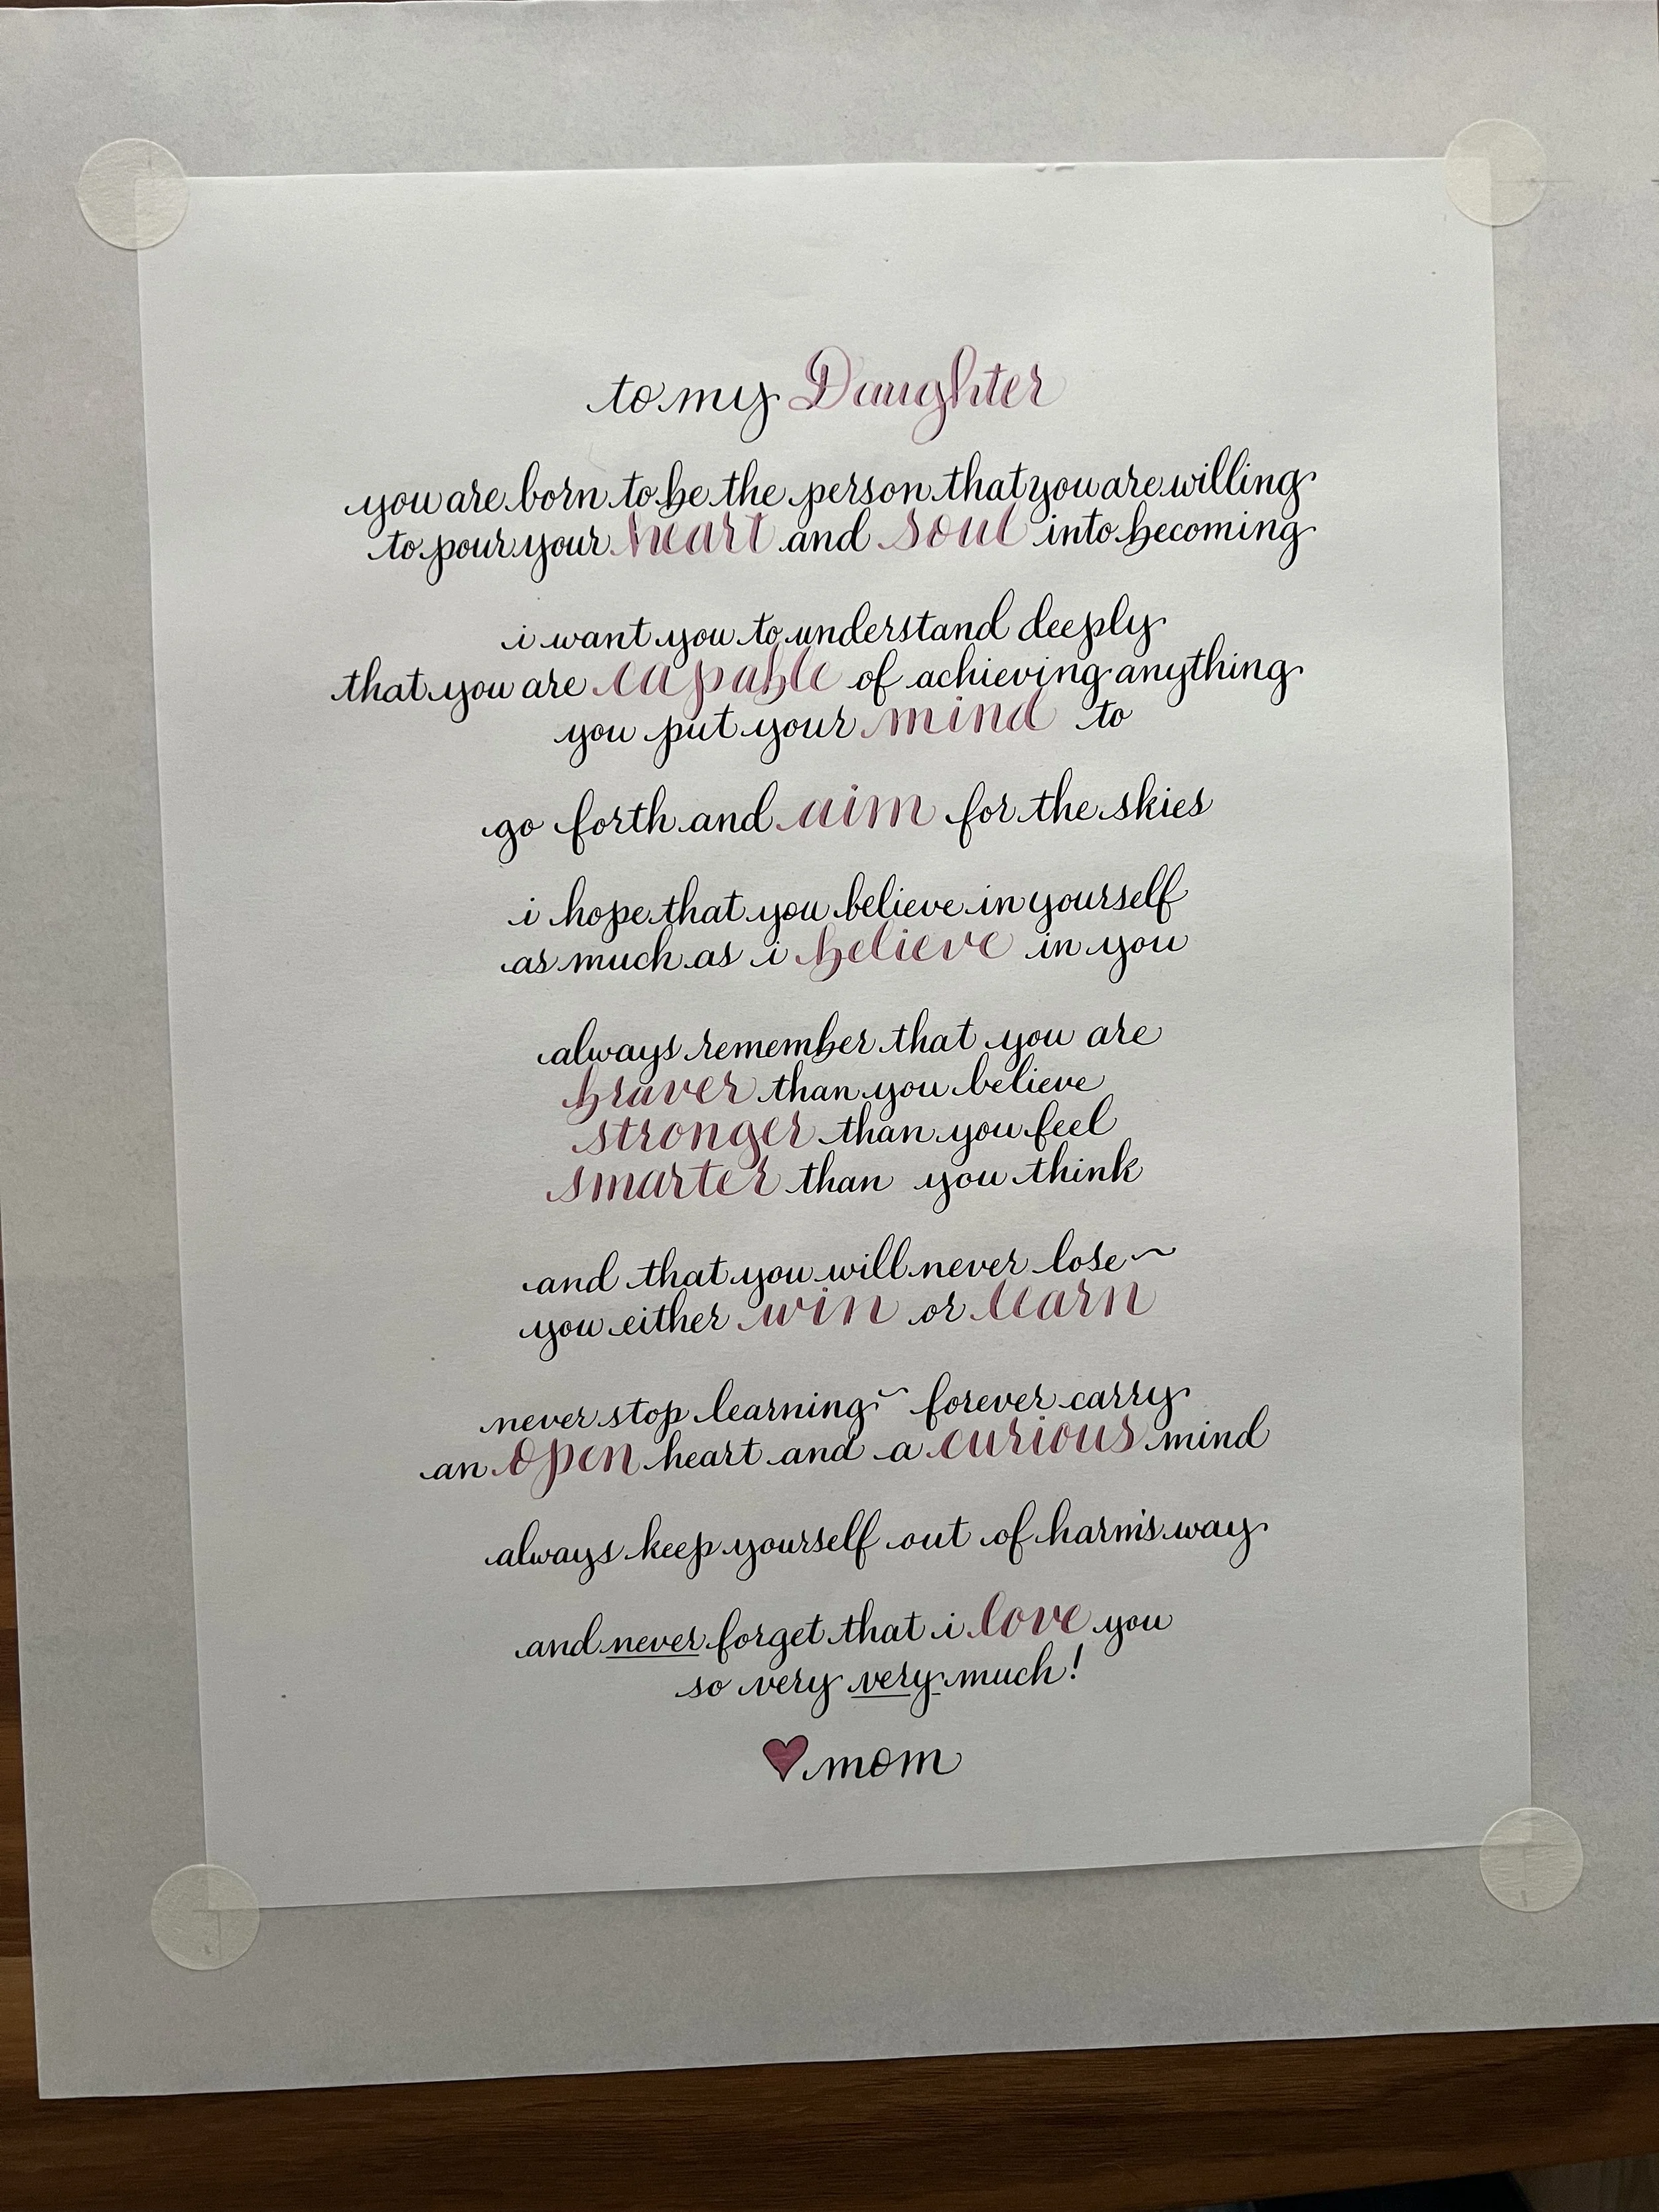 to my Daughter
you are born to be the person that you are willing
to pour your heart and soul into becoming
i want you to understand deeply
that you are capable of achieving anything
you put your mind to
go forth and aim for the skies
i hope that you believe in yourself
as much as i believe in you
always remember that you are
braver than you believe
stronger than you feel
smarter than you think
and that you will never lose ~
you either win or learn
never stop learning ~ forever carry
an open heart and a curious mind
always keep yourself out of harm's way
and never forget that i love you
so very very much!
♥ mom